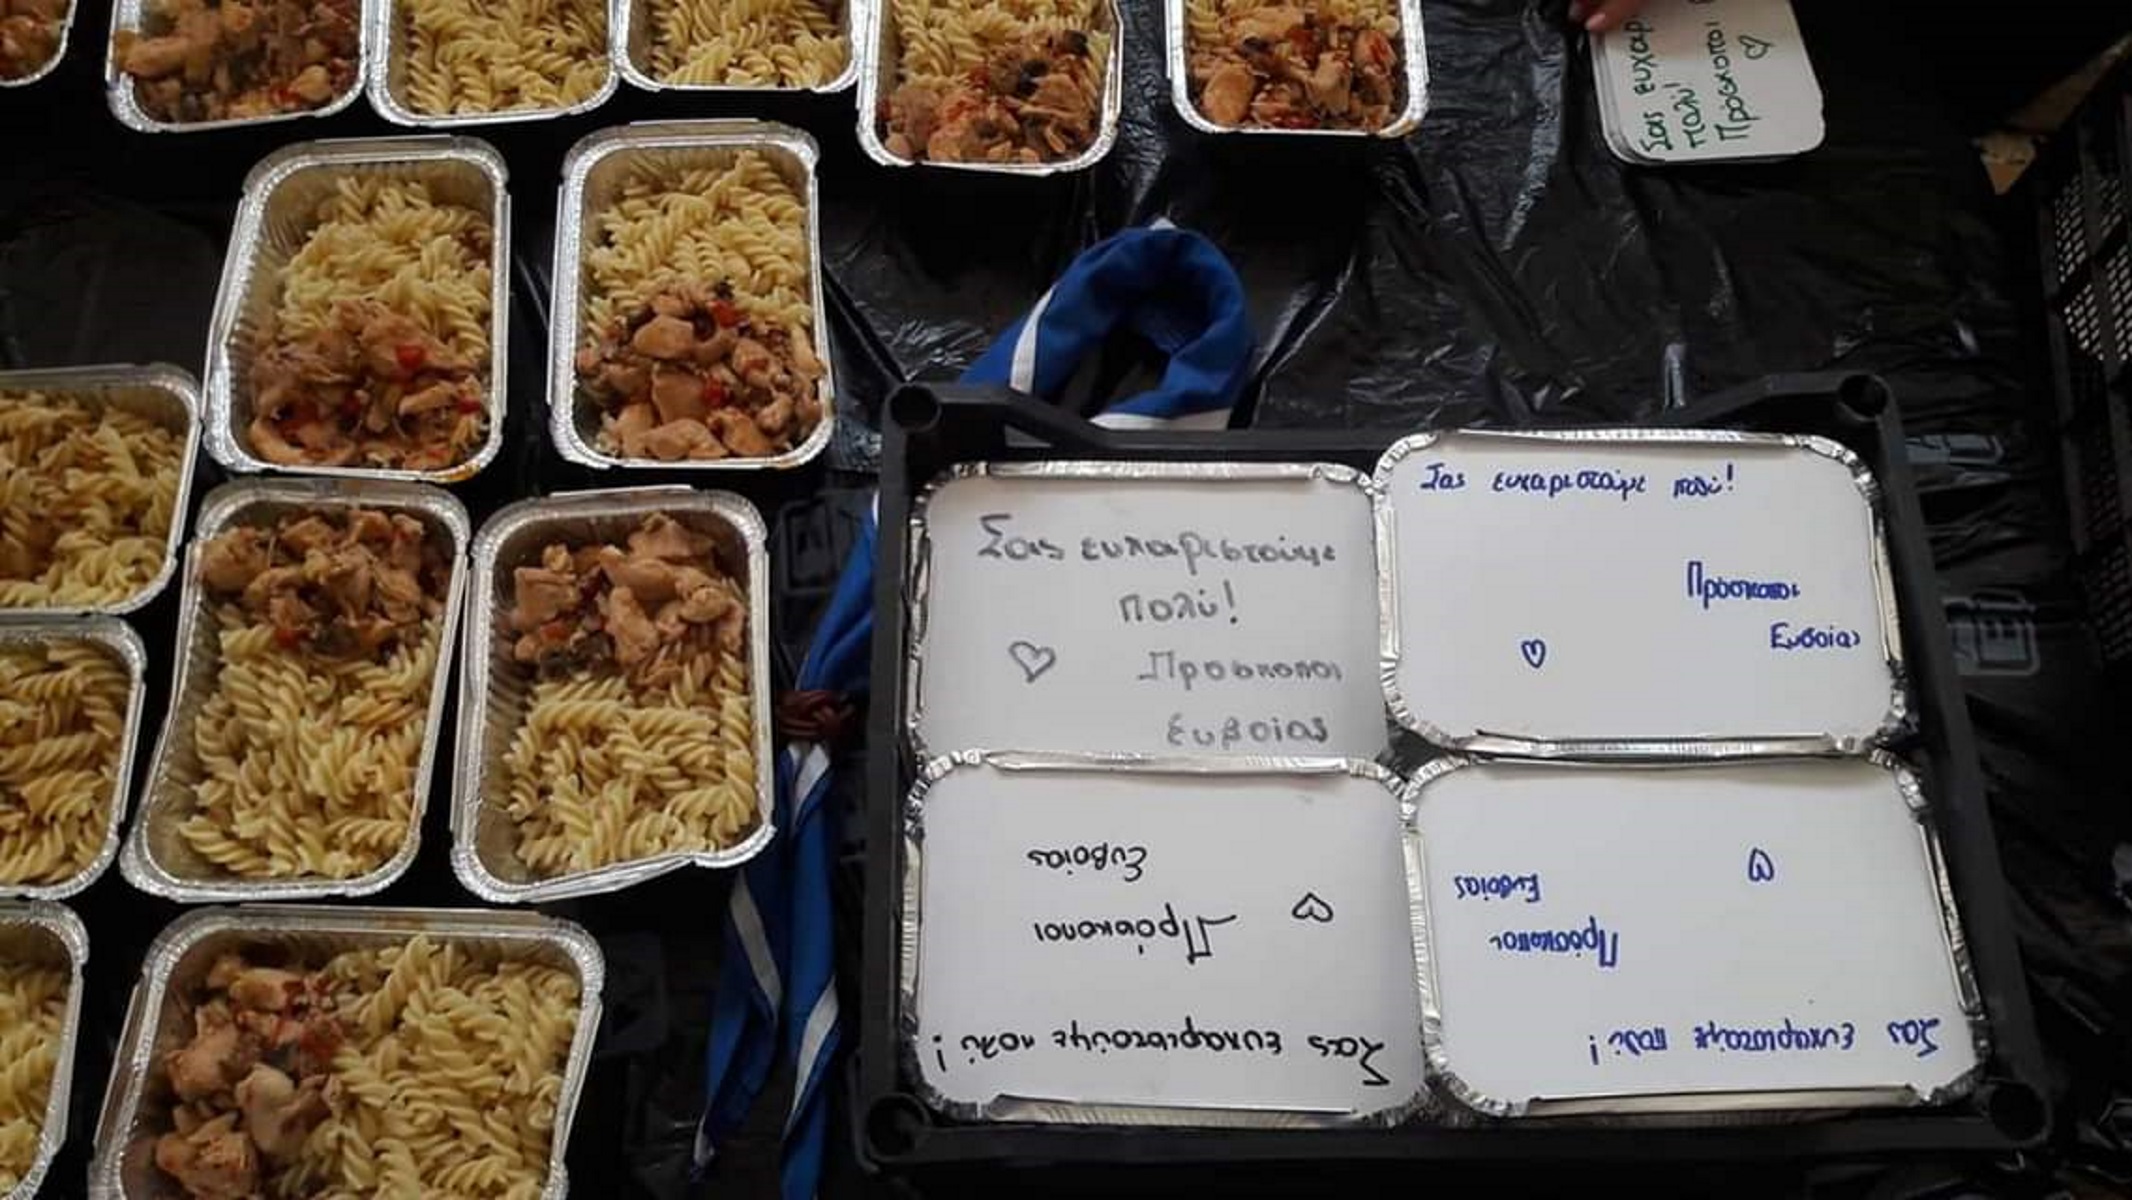 Σας ευχαρ
πολύ!
Πρόσκοποι
Σας ευχαριστούμε
πολύ!
Προσκοποι
Ευβοίας
Σας ευχαριστούμε πολύ!
Πρόσκοποι
Ευβοίας
Σας ευχαριστούμε πολύ!
Πρόσκοποι
Ευβοίας
Σας ευχαριστούμε πολύ!
Πρόσκοποι
Ευβοίας